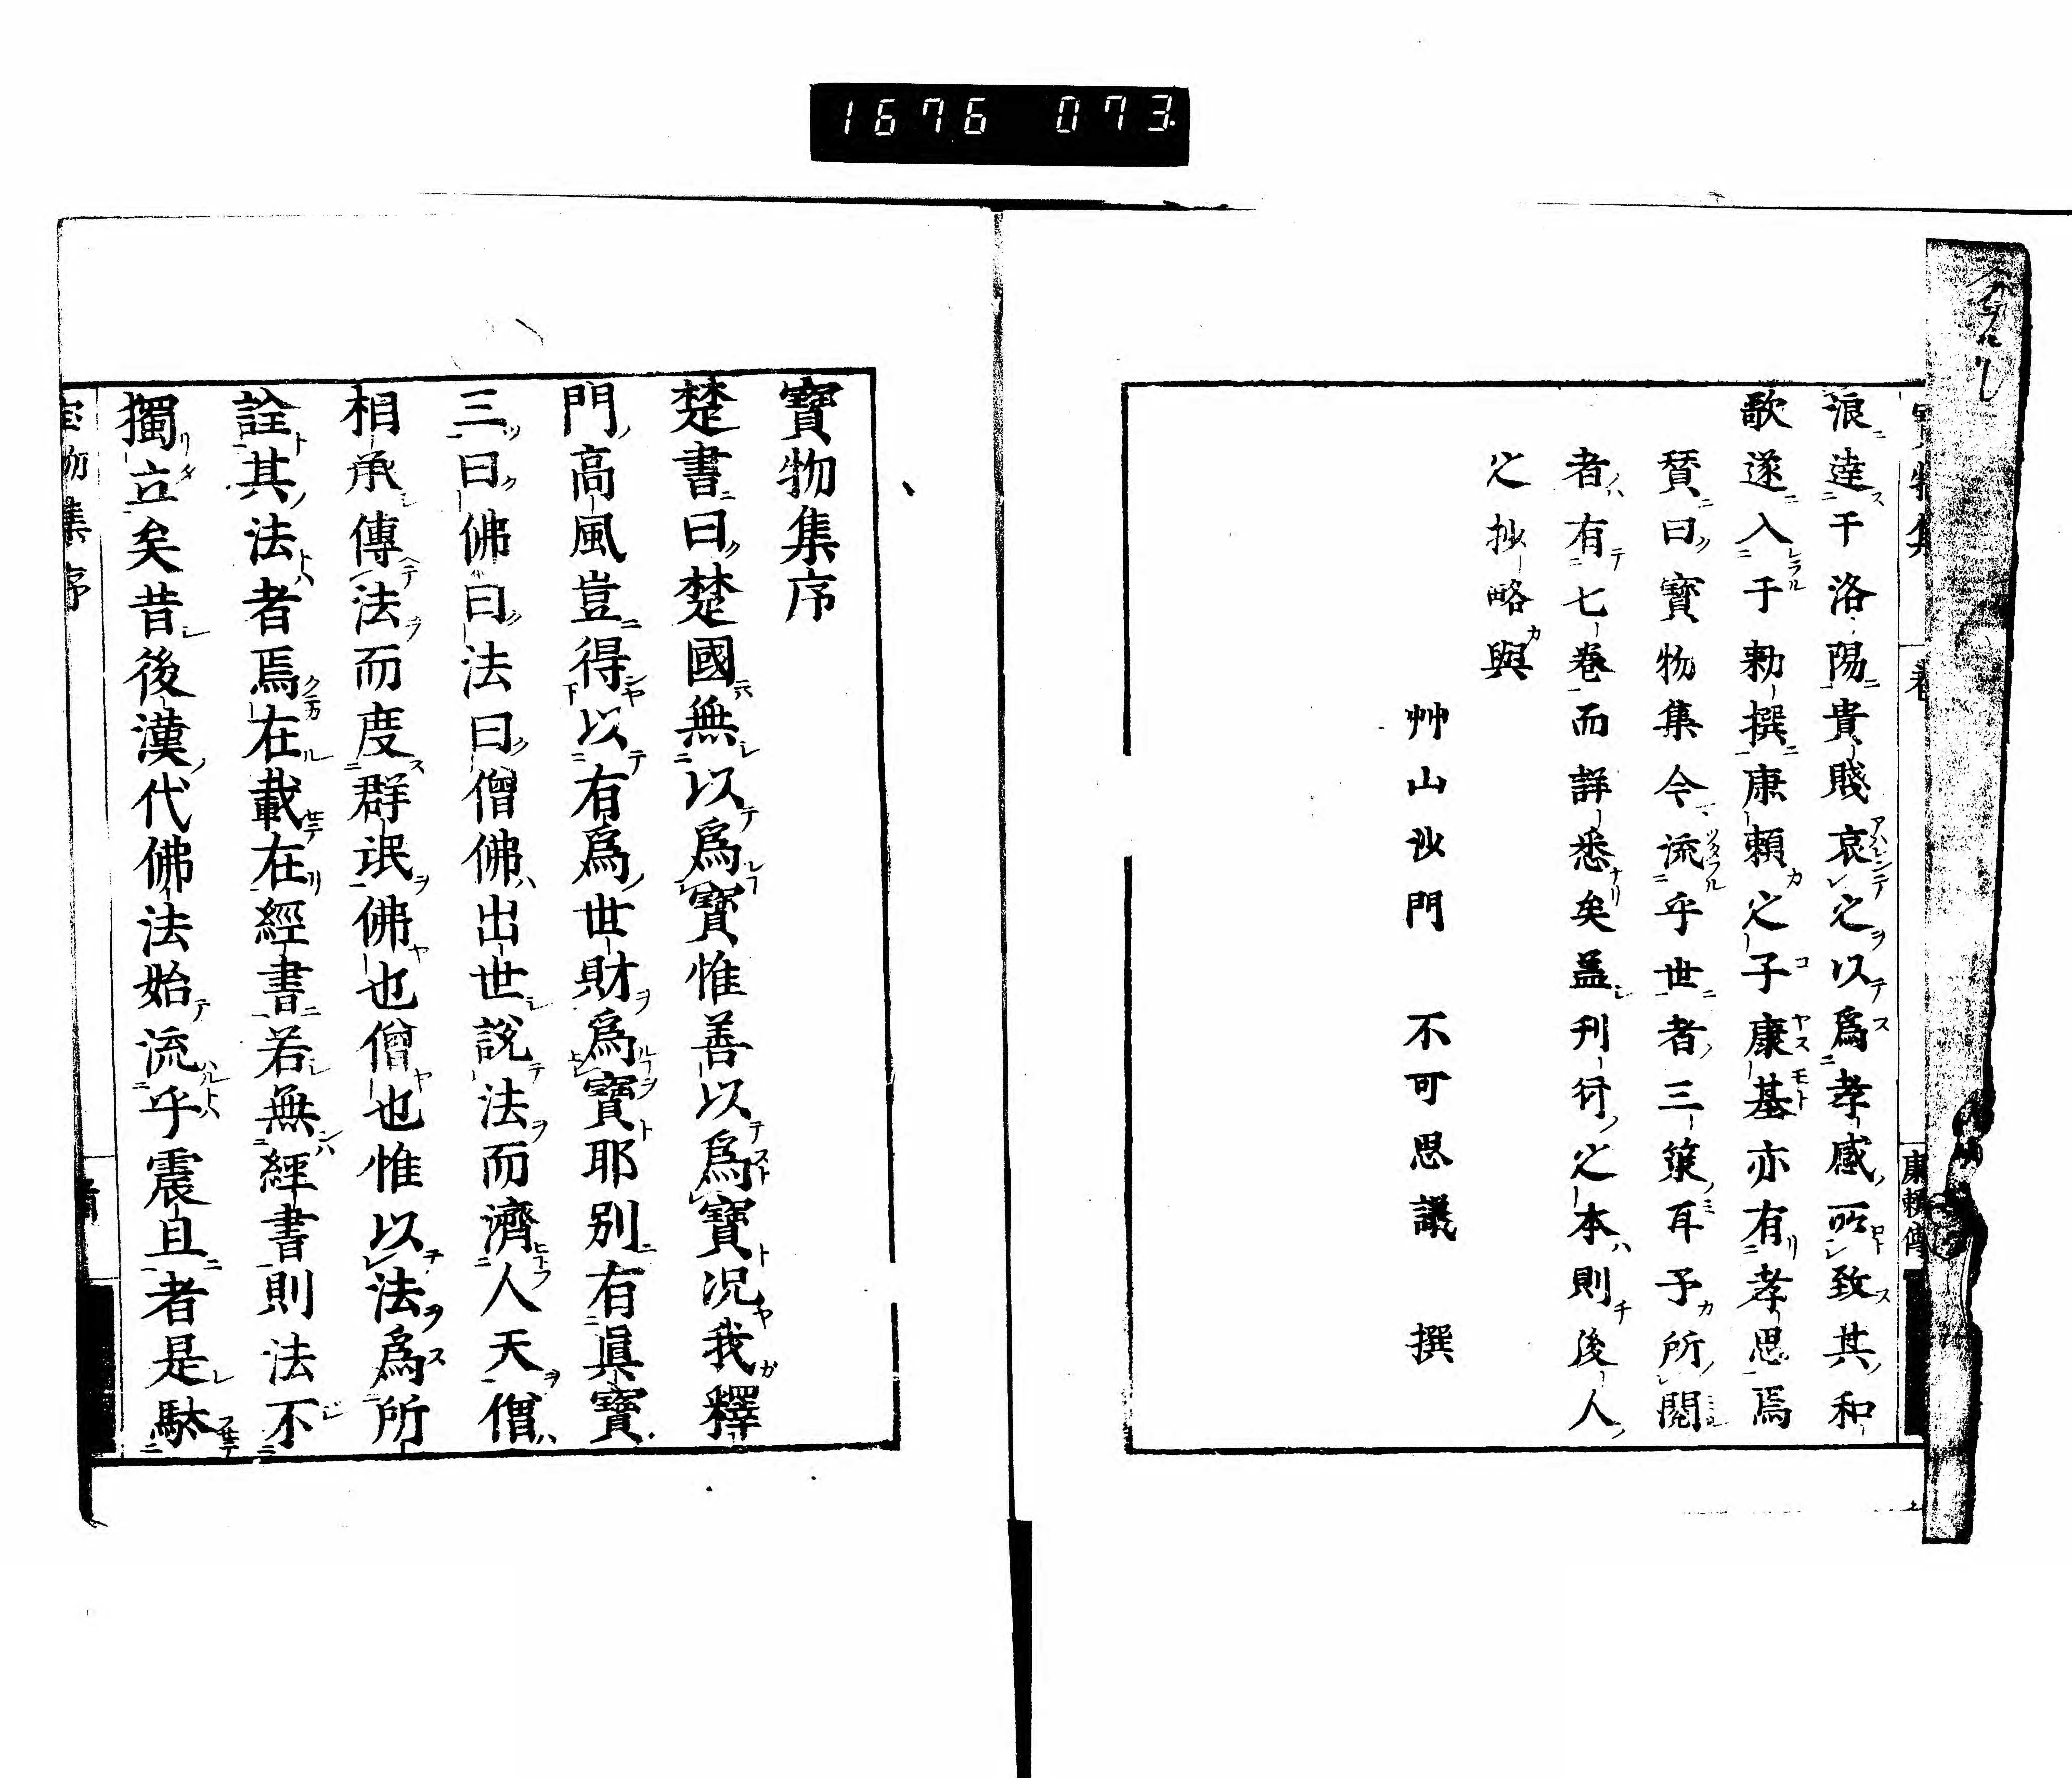 1676 073
浪達于洛陽貴賤哀之以爲孝感所致其和
歌遂入于勅撰康賴之子康基亦有孝思焉
賛曰寳物集今流乎世者三策耳予所閲
者有七卷而詳悉矣盖刋行之本則後人
之抄略與
艸山沙門 不可思議 撰
寳物集序
楚書曰楚國無以爲寳惟善以爲寳況我釋
門高風豈得以有爲世財爲寳耶别有眞寳
三曰佛曰法曰僧佛出世說法而濟人天僧
相承傳法而度群氓佛也僧也惟以法爲所
詮其法者焉在載在經書若無經書則法不
獨立矣昔後漢代佛法始流乎震旦者是駄